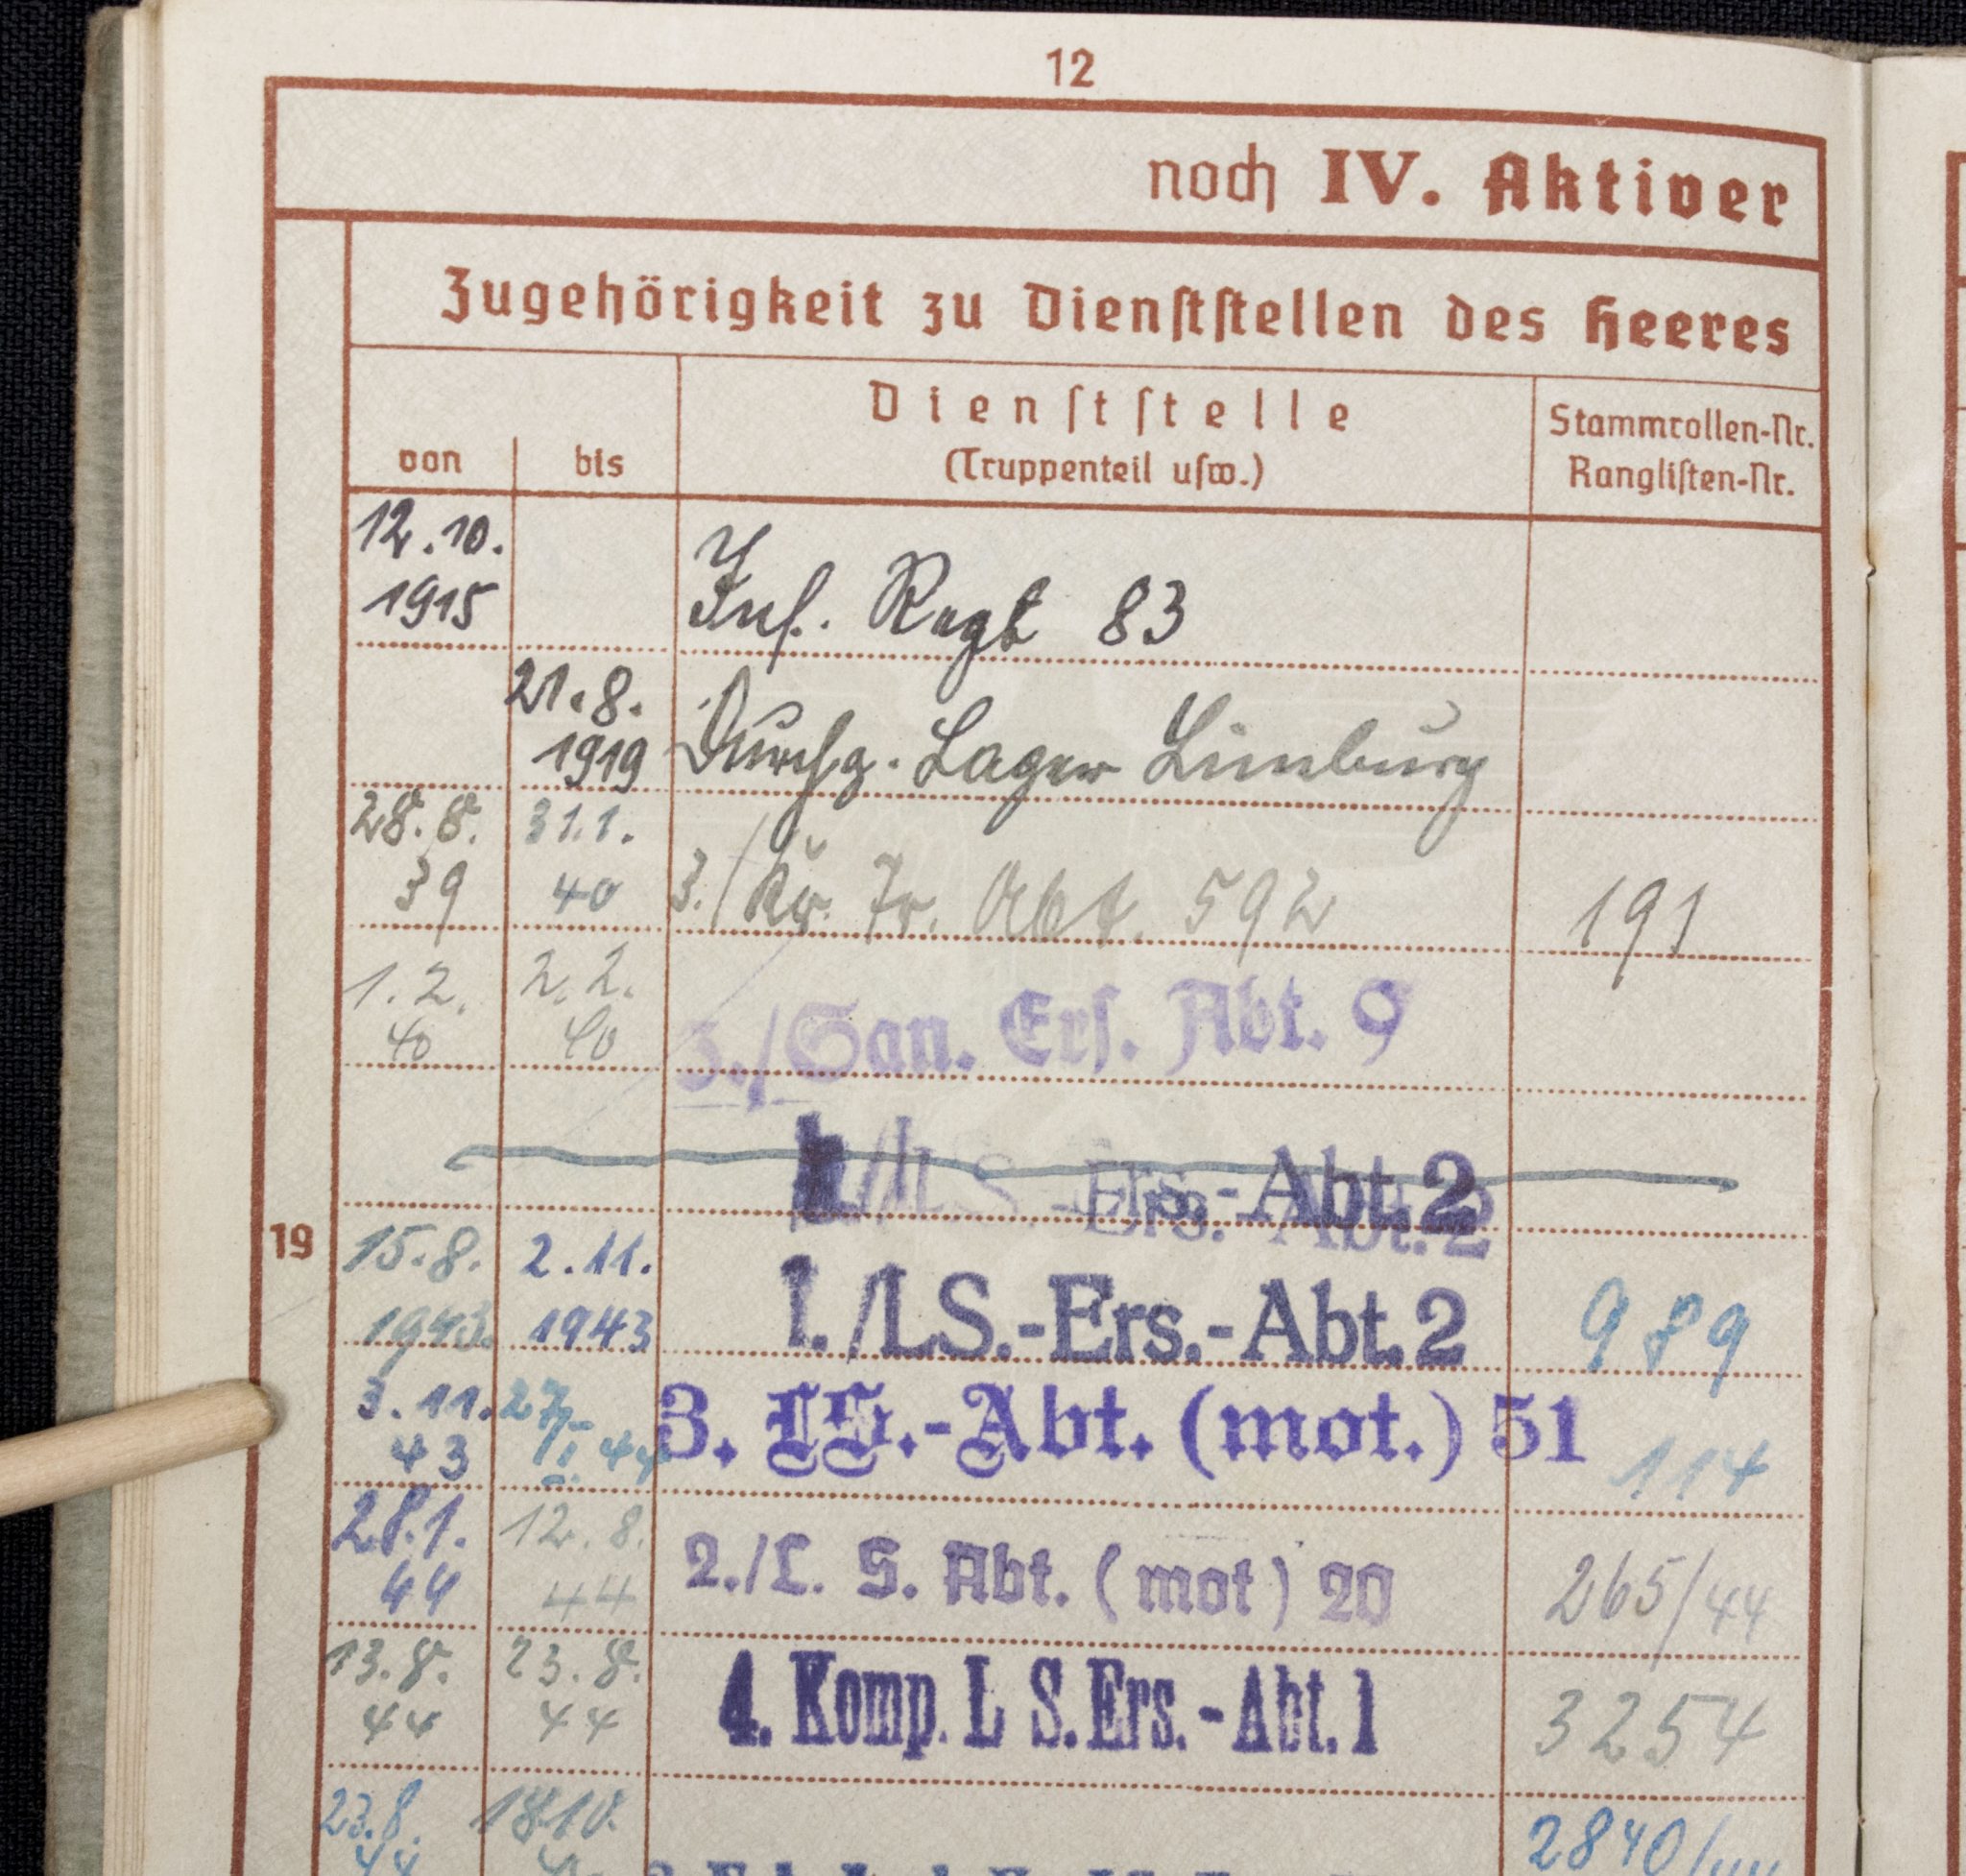 12
noch IV. Aktiver
Zugehörigkeit zu Dienststellen des Heeres
von bis
Dienststelle
(Truppenteil usw.)
Stammrollen-Nr.
Ranglisten-Nr.
12.10.
1915
Inf. Regt 83
21.8.
1919
Durchg. Lager Limburg
28.8.
39
31.1.
40
3./Kw. Tr. Abt. 592
191
1.2.
40
2.2.
40
3./San. Ers. Abt. 9
/LS.-Ers.-Abt. 2
19
15.8.
1943.
2.11.
1943
1./LS.-Ers.-Abt. 2
989
3.11.
43
27/I. 44
3. LS.-Abt. (mot.) 51
114
28.1.
44
12.8.
44
2./L. S. Abt. (mot) 20
265/44
13.8.
44
23.8.
44
4. Komp. L S. Ers.-Abt. 1
3254
23.8.
44
18.10.
2840/44